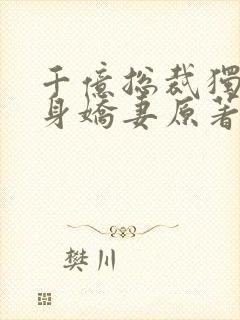 千億总裁獨
身嬌妻原著
樊川